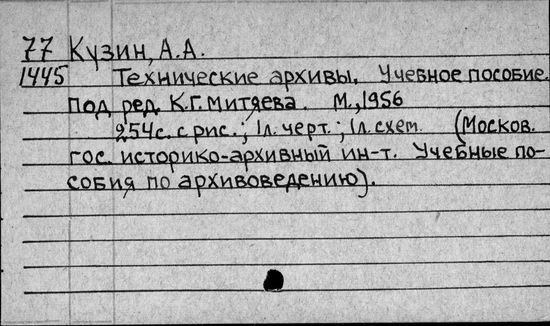 77 Кузин, А.А.
1445 Технические архивы. Учебное пособие.
Под ред. К.Г. Митяева. М., 1956
254с. с рис.; 1л. черт.; 1л. схем. (Москов.
гос. историко-архивный ин-т. Учебные по-
собия по архивоведению).